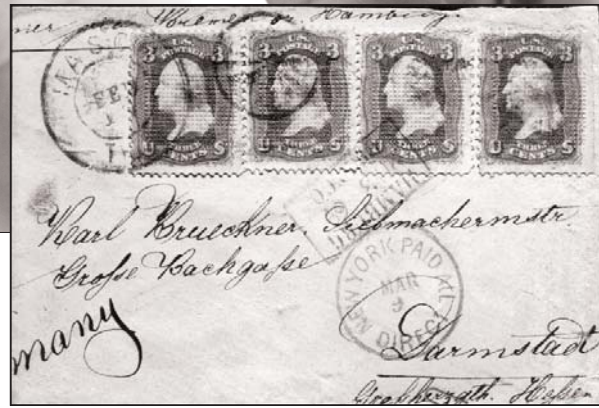 via Bremen or Hamburg.
U.S. POSTAGE 3 3 THREE CENTS U S
U.S. POSTAGE 3 3 THREE CENTS U S
U.S. POSTAGE 3 3 THREE CENTS U S
U.S. POSTAGE 3 3 THREE CENTS U S
FEB
Karl Brueckner, Siebmachermstr.
Grosse Bachgaße
NEW YORK PAID ALL
MAR
DIRECT
many
Darmstadt
Großherzgth. Hessen